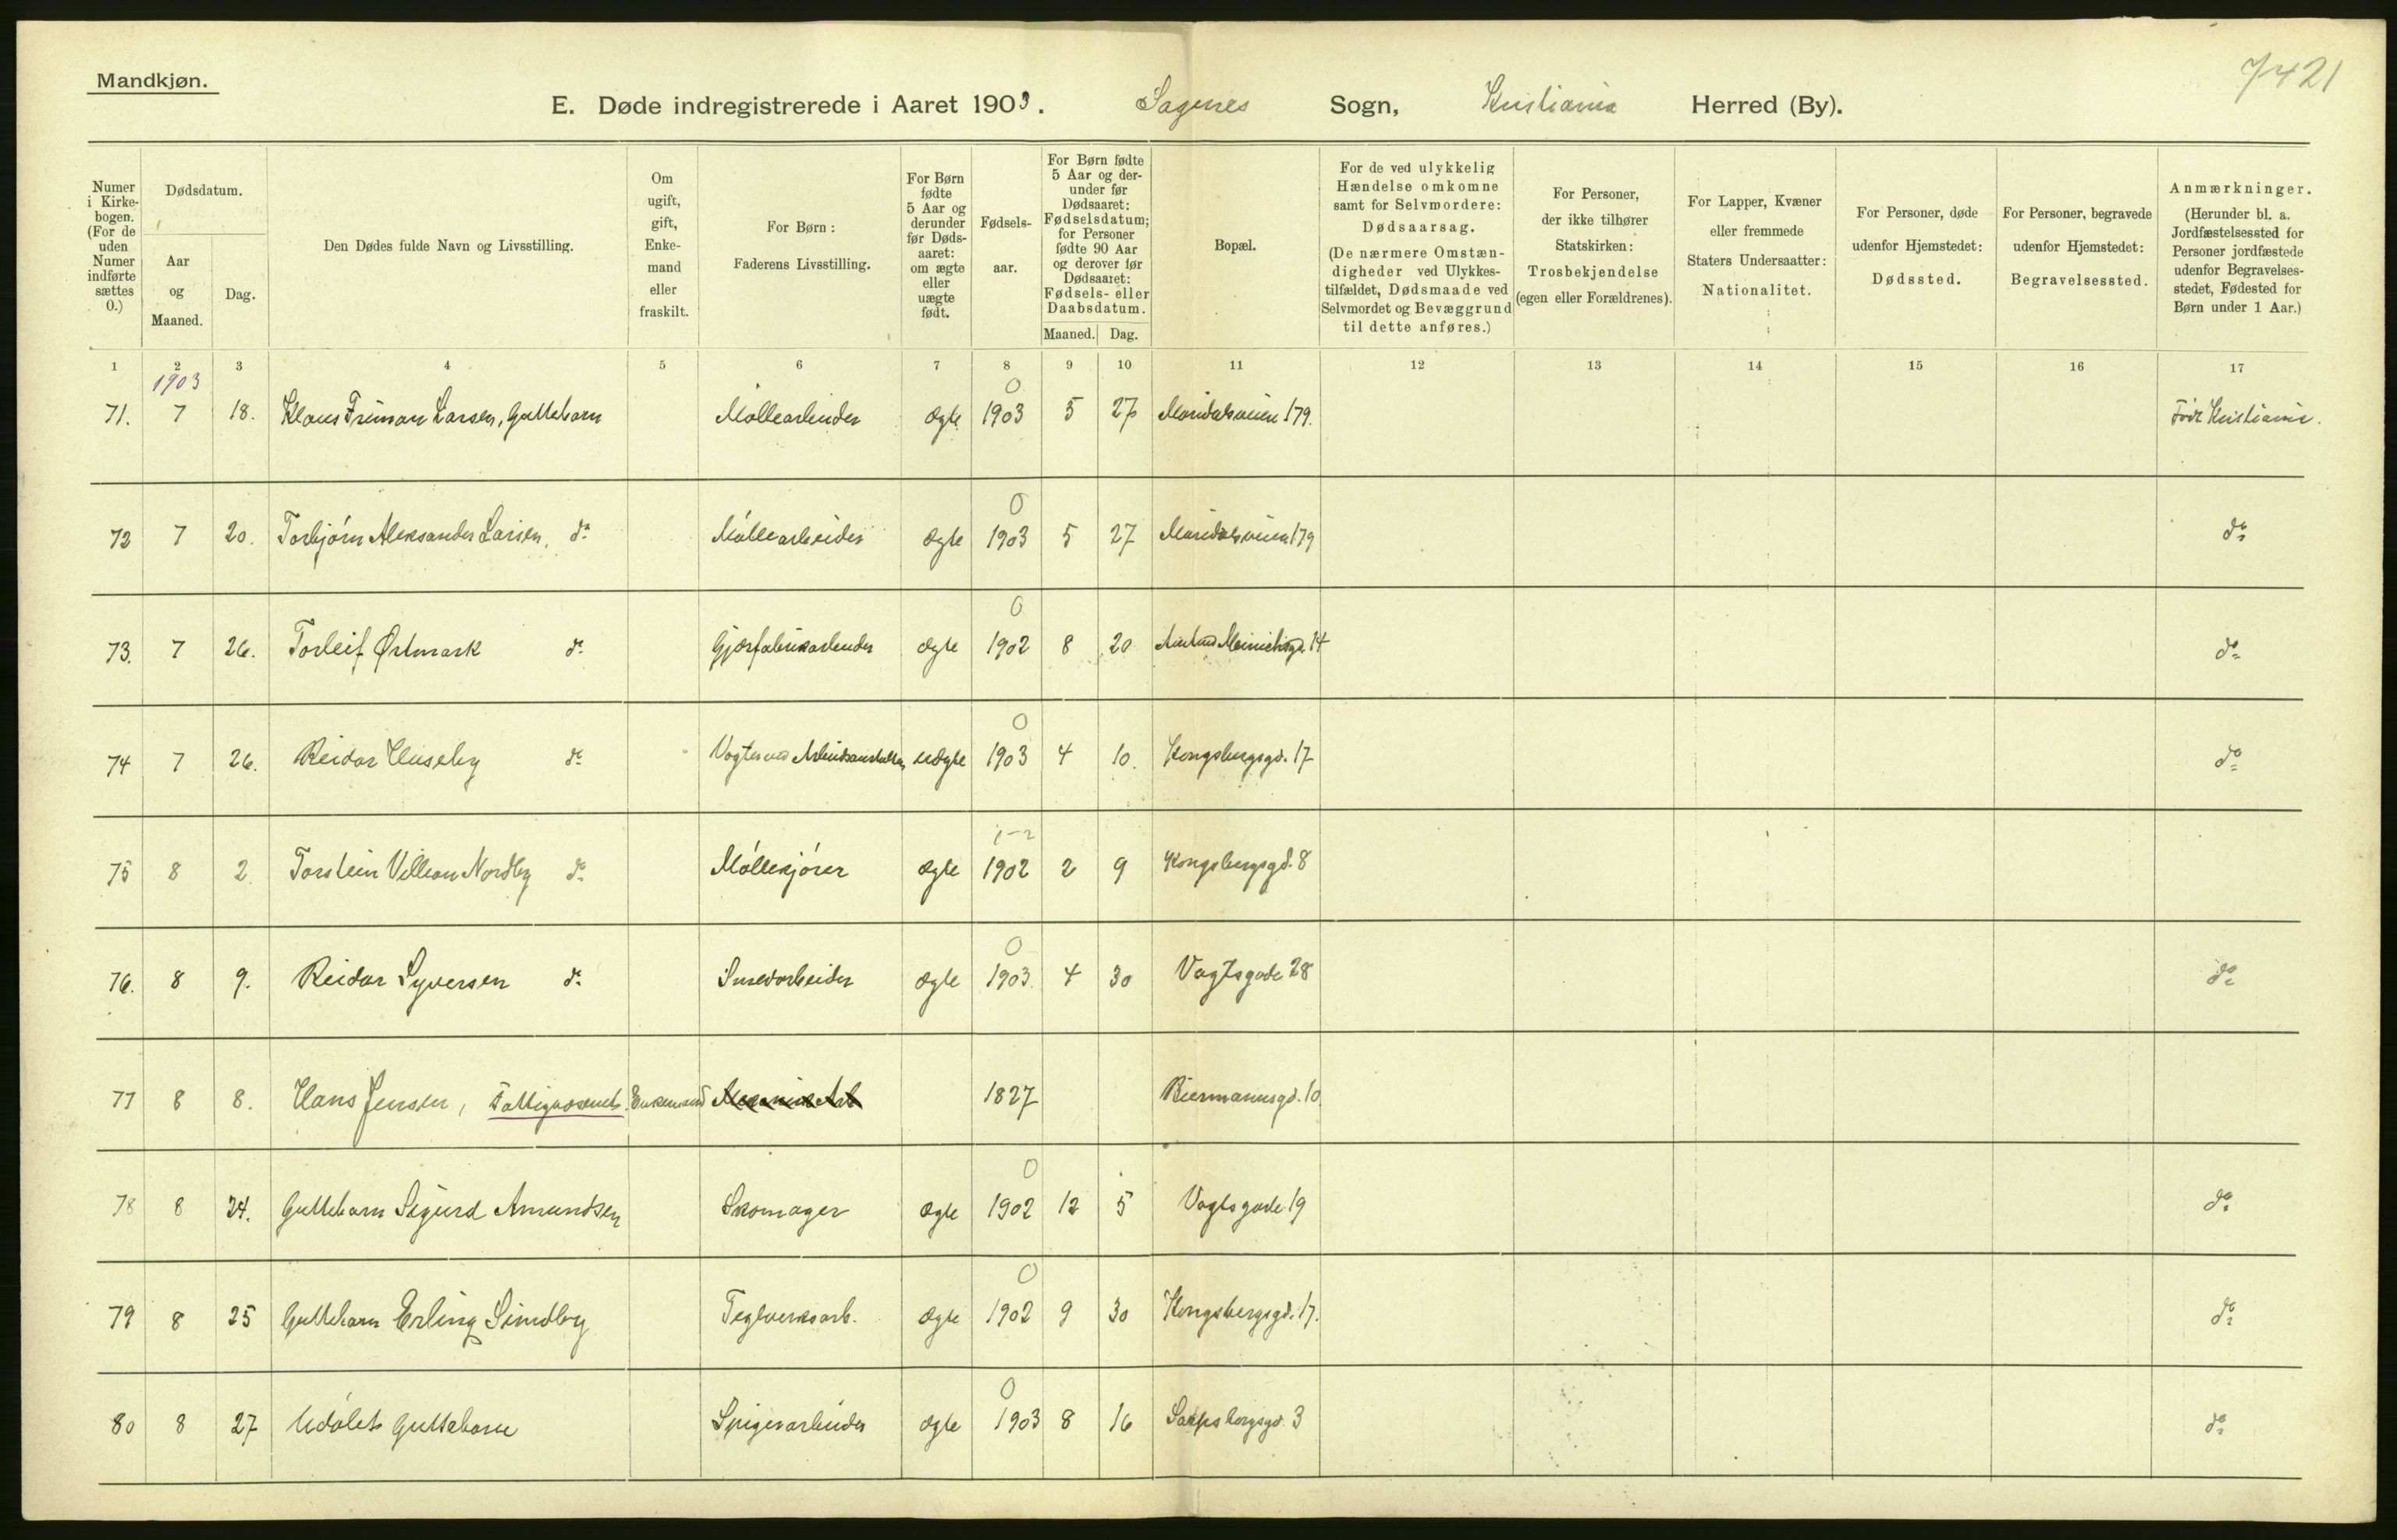 Mandkjøn.
7421
E. Døde indregistrerede i Aaret 1903. Sagenes Sogn, Kristiania Herred (By).
Numer i Kirkebogen. (For de uden Numer indførte sættes 0.)
Dødsdatum.
Aar og Maaned.
Dag.
Den Dødes fulde Navn og Livsstilling.
Om ugift, gift, Enkemand eller fraskilt.
For Børn: Faderens Livsstilling.
For Børn fødte 5 Aar og derunder før Dødsaaret: om ægte eller uægte født.
Fødselsaar.
For Børn fødte 5 Aar og derunder før Dødsaaret: Fødselsdatum; for Personer fødte 90 Aar og derover før Dødsaaret: Fødsels- eller Daabsdatum.
Maaned. Dag.
Bopæl.
For de ved ulykkelig Hændelse omkomne samt for Selvmordere: Dødsaarsag. (De nærmere Omstændigheder ved Ulykkestilfældet, Dødsmaade ved Selvmordet og Bevæggrund til dette anføres.)
For Personer, der ikke tilhører Statskirken: Trosbekjendelse (egen eller Forældrenes).
For Lapper, Kvæner eller fremmede Staters Undersaatter: Nationalitet.
For Personer, døde udenfor Hjemstedet: Dødssted.
For Personer, begravede udenfor Hjemstedet: Begravelsessted.
Anmærkninger. (Herunder bl. a. Jordfæstelsessted for Personer jordfæstede udenfor Begravelsesstedet, Fødested for Børn under 1 Aar.)
1 2 3 4 5 6 7 8 9 10 11 12 13 14 15 16 17
1903 0
71. 7 18. Klaus Friman Larsen, Guttebarn Møllearbeider ægte 1903 5 27 Maridalsveien 179. Født Kristiania.
0
72 7 20. Torbjørn Aleksander Larsen, do Møllearbeider ægte 1903 5 27 Maridalsveien 179 do
0
73. 7 26. Torleif Østmark do Gjærfabrikarbeider ægte 1902 8 20 14 do
0
74 7 26. Reidar Huseby do Vogter ved Arbeidsanstalten uægte 1903 4 10. Kongsbergsgd. 17 do
1-2
75 8 2. Torstein Villian Nordby do Møllekjører ægte 1902 2 9 Kongsbergsgd. 8
0
76. 8 9. Reidar Syversen do Smedarbeider ægte 1903. 4 30 Vogtsgade 28 do
77 8 8. Hans Jensen, Fattigvæsenet. Enkemand 1827 Biermannsgd. 10.
0
78 8 24. Guttebarn Sigurd Amundsen Skomager ægte 1902 12 5 Vogtsgade 19 do
0
79 8 25 Guttebarn Erling Sindby Teglverksarb. ægte 1902 9 30 Kongsbergsgd. 17. do
0
80 8 27 Udøbt Guttebarn Spigerarbeider ægte 1903 8 16 Sarpsborgsgd. 3 do